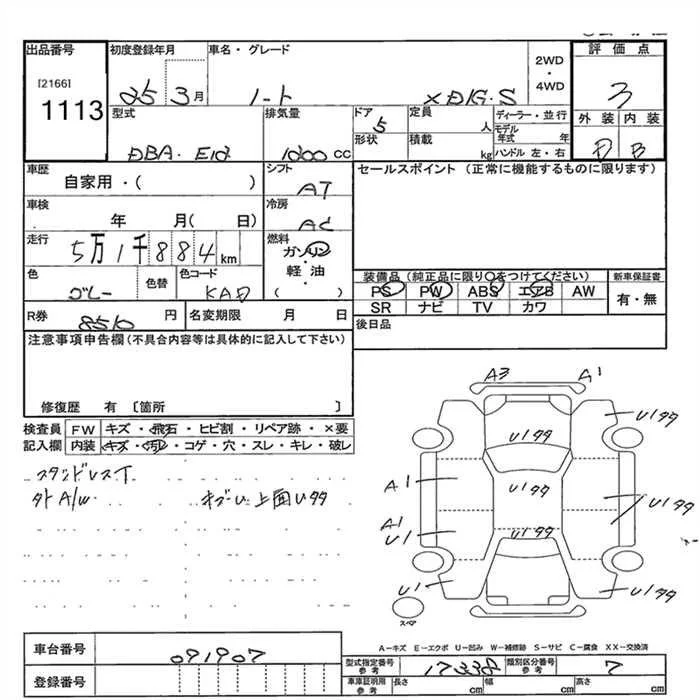 出品番号 初度登録年月 車名・グレード 2WD・4WD 評価点
[2166]
1113 25 3月 ノート X DIG・S 3
型式 排気量 ドア 5 形状 定員 人 積載 kg ディーラー・並行 モデル年式 年 ハンドル 左・右 外装 内装
DBA・E12 1200 cc D B
車歴 シフト セールスポイント (正常に機能するものに限ります)
自家用・( ) AT
車検 冷房
年 月( 日) AC
走行 5万1千884km 燃料 ガソリン・軽油・( )
色 グレー 色替 色コード KAD
装備品 (純正品に限り○をつけてください) 新車保証書
PS PW ABS エアB AW 有・無
SR ナビ TV カワ
R券 8510 円 名変期限 月 日 後日品
注意事項申告欄 (不具合内容等は具体的に記入して下さい)
修復歴 有 〔箇所 〕
検査員 FW キズ・飛石・ヒビ割・リペア跡・×要
記入欄 内装 キズ・汚れ・コゲ・穴・スレ・キレ・破レ
スタッドレスT
外A/W
上面Uタタ
A3 A1
U1タタ U1タタ
A1 U1タタ U1タタ
A1
U1 U1タタ
U1 U1タタ
スペア
A-キズ E-エクボ U-凹み W-補修跡 S-サビ C-腐食 XX-交換済
車台番号 091907
型式指定番号 参考 17338 類別区分番号 参考 7
登録番号 車庫証明用 参考 長さ cm 幅 cm 高さ cm